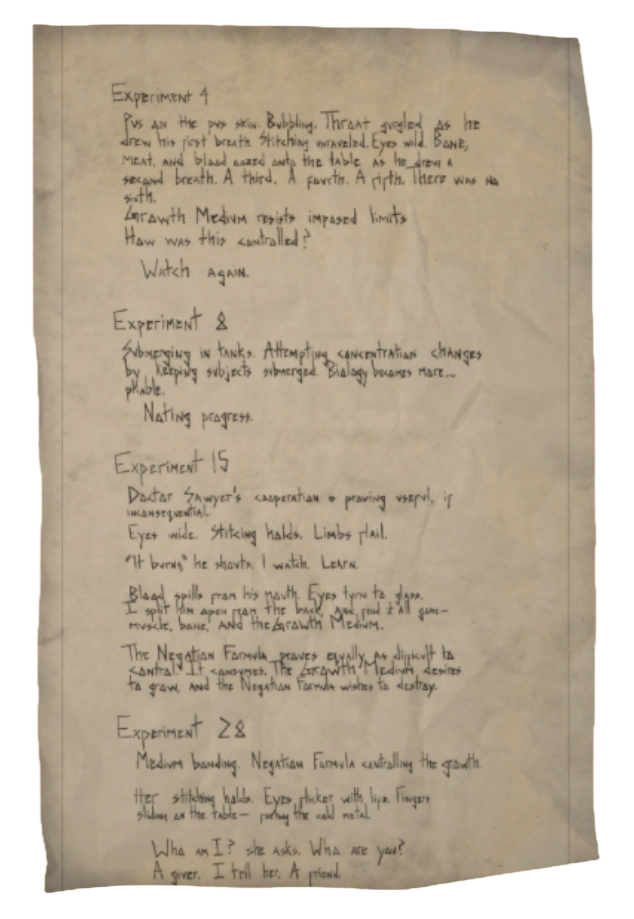 Experiment 4
Pus on the pvs skin. Bubbling. Throat gurgled as he
drew his first breath. Stitching unraveled. Eyes wild. Bone,
meat, and blood oozed onto the table as he drew a
second breath. A third. A fourth. A fifth. There was no
sixth.
Growth Medium resists imposed limits
How was this controlled?
Watch again.
Experiment 8
Submerging in tanks. Attempting concentration changes
by keeping subjects submerged. Biology becomes more...
pliable.
Noting progress.
Experiment 15
Doctor Sawyer's cooperation is proving useful, if
inconsequential.
Eyes wide. Stitcing holds. Limbs flail.
"It burns," he shouts. I watch. Learn.
Blood spills from his mouth. Eyes turn to glass.
I split him open from the back, and find it all gone—
muscle, bone, and the Growth Medium.
The Negation Formula proves equally as difficult to
control. It consumes. The Growth Medium desires
to grow, and the Negation Formula wishes to destroy.
Experiment 28
Medium bonding. Negation Formula controlling the growth.
Her stitching holds. Eyes flicker with life. Fingers
sliding on the table— feeling the cold metal.
Who am I? she asks. Who are you?
A giver. I tell her. A friend.